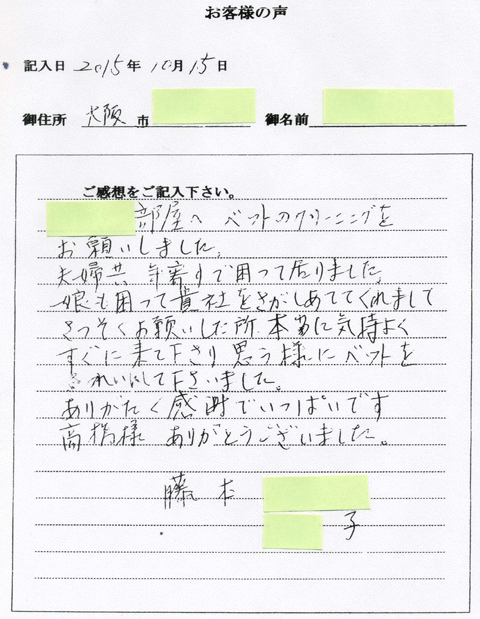 お客様の声
記入日 2015年 10月 15日
御住所 大阪 市 御名前
ご感想をご記入下さい。
部屋へ ベットのクリーニングを
お願いしました。
夫婦共 年寄りで困って居りました。
娘も困って貴社をさがしあててくれまして
さっそくお願いした所、本当に気持よく
すぐに来て下さり 思う様にベットを
きれいにして下さいました。
ありがたく感謝でいっぱいです
高橋様 ありがとうございました。
藤本
子